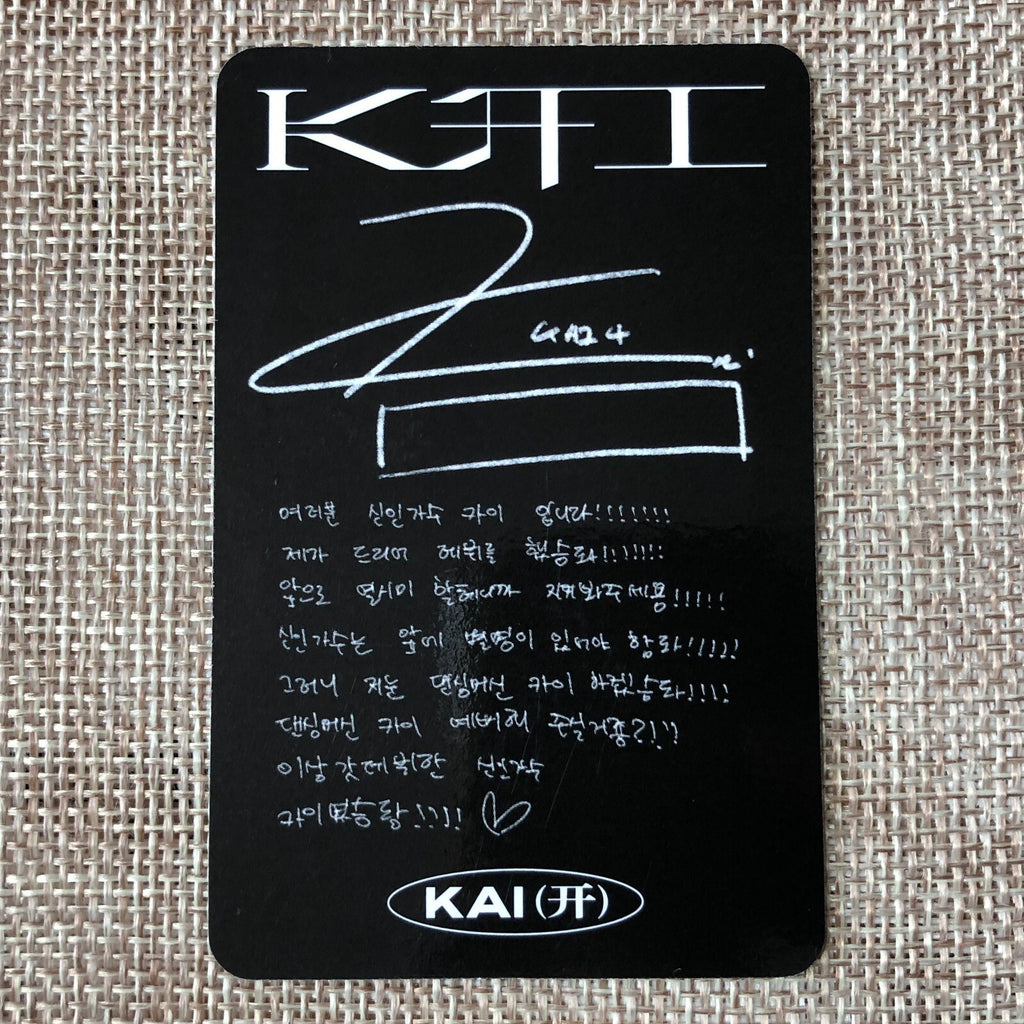 KAI
여러분 신인가수 카이 입니다!!!!!!!
제가 드디어 데뷔를 했슴돠!!!!!!!
앞으로 열시미 할테니까 지켜봐주세용!!!!!
신인가수는 앞에 별명이 있어야 함돠!!!!!
그러니 저는 댄싱머신 카이 하겠슴돠!!!!
댄싱머신 카이 예뻐해 주실거죵?!!?
이상 갓데뷔한 신인가수
카이였슴돵!!!!
KAI(开)